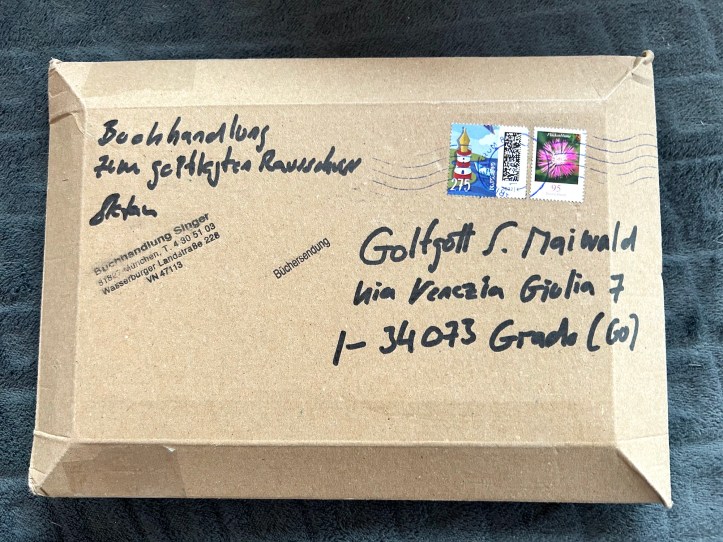 Buchhandlung
zum gepflegten Rausschuss
Stefan
Buchhandlung Singer
81827 München, T. 4 30 51 03
Wasserburger-Landstraße 226
VN 47113
Büchersendung
275
95
Golfgott S. Maiwald
Via Venezia Giulia 7
I-34073 Grado (GO)